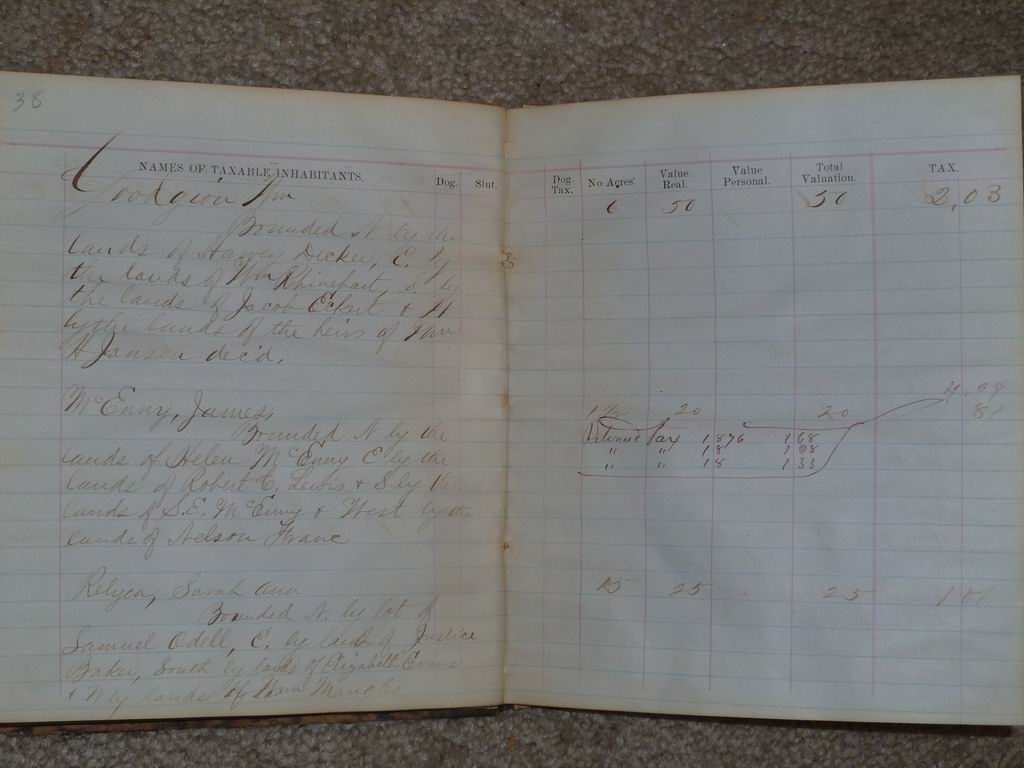 38
NAMES OF TAXABLE INHABITANTS. Dog. Slut. Dog Tax. No Acres. Value Real. Value Personal. Total Valuation. TAX.
Wm 6 50 50 2,03
Bounded N by the
lands of Harvey Decker, E. by
the lands of Wm Rhinehart, S by
the lands of Jacob Eckert & W
by the lands of the heirs of Wm
H Jansen dec'd.
McEnny, James, 20 20 81
Bounded N by the Returned Tax 1876 168
lands of Helen McEnny E by the " " 18
lands of Robert C, Lewis & S by the " " 18 133
lands of S.E. McEnny & West by the
lands of Nelson
Relyea, Sarah Ann 15 25 25 1 01
Bounded N. by lot of
Samuel Odell, E. by lands of Justice
Baker, South by lands of Elizabeth Evans
& W by lands of